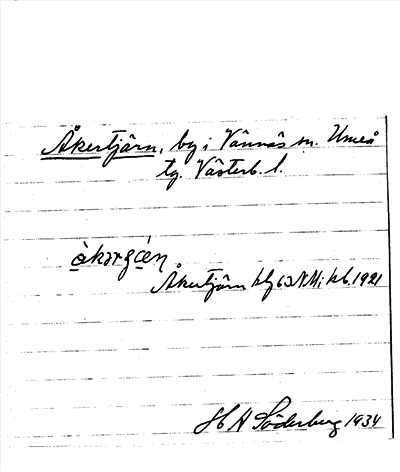 Åkertjärn, by i Vännäs sn. Umeå
tg. Västerb. l.
Åkertjärn kbl 63 N.Mi; kb. 1921
H A Söderberg 1934